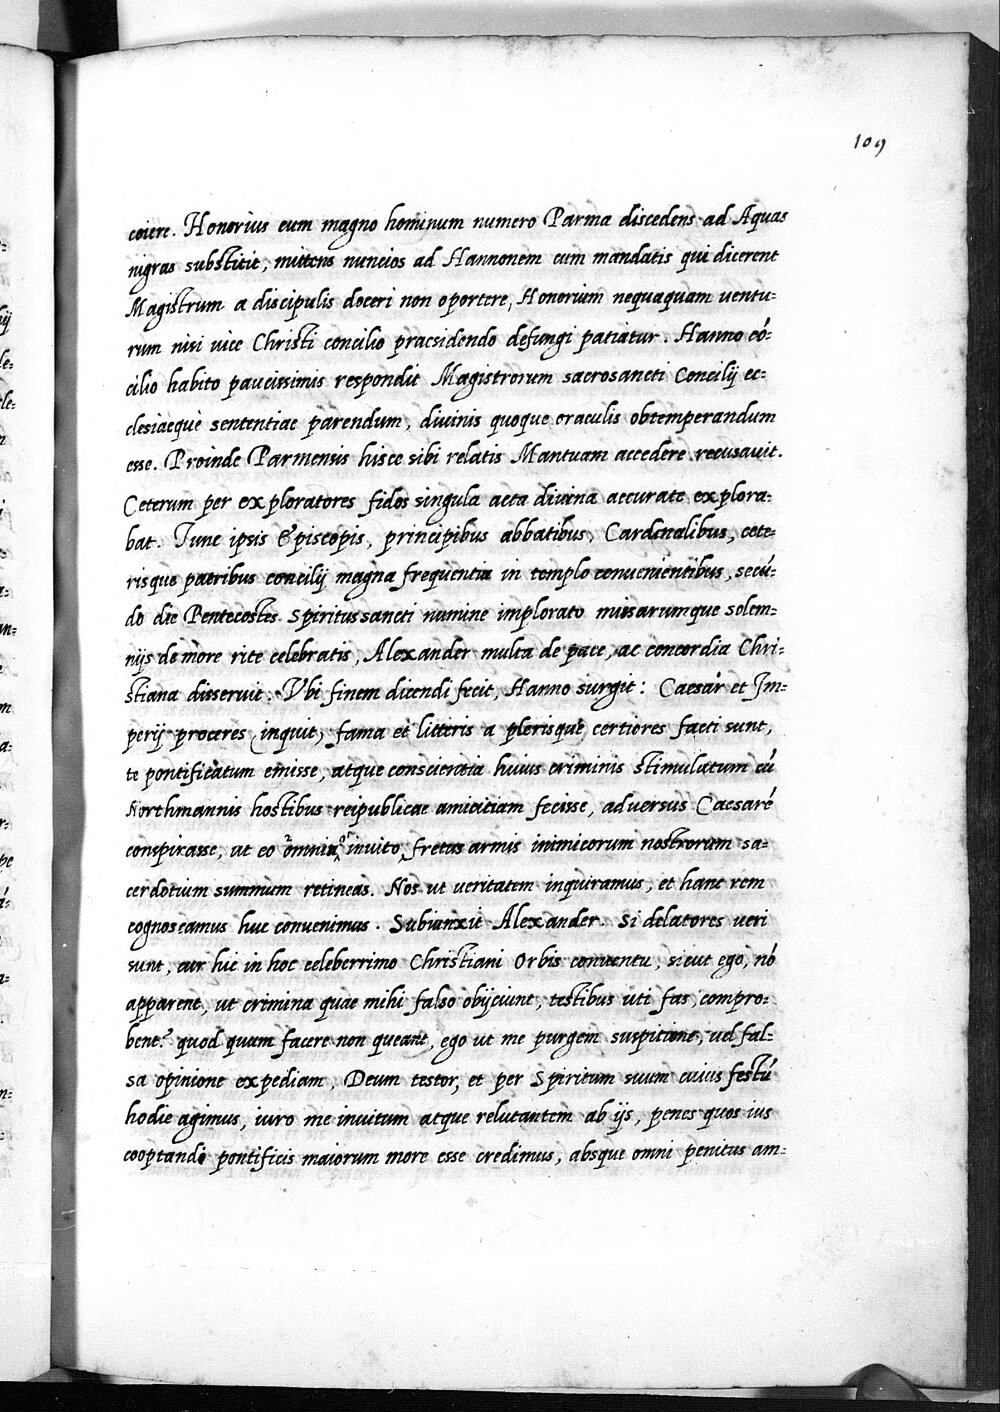 109
coiere. Honorius cum magno hominum numero Parma discedens ad Aquas
nigras substitit, mittens nuncios ad Hannonem cum mandatis qui dicerent
Magistrum a discipulis doceri non oportere, Honorium nequaquam ventu=
rum nisi vice Christi concilio praesidendo defungi patiatur. Hanno có=
cilio habito paucissimis respondit Magistrorum sacrosancti Concilij ec=
clesiaeque sententiae parendum, divinis quoque oraculis obtemperandum
esse. Proinde Parmensis hisce sibi relatis Mantuam accedere recusavit.
Ceterum per exploratores fidos singula acta divina accurate explora=
bat. Tunc ipsis Episcopis, principibus abbatibus, Cardinalibus, cete=
risque patribus concilij magna frequentia in templo convenientibus, secú=
do die Pentecostes Spiritussancti numine implorato missarumque solem=
nijs de more rite celebratis, Alexander multa de pace, ac concordia Chri=
stiana disseruit. Ubi finem dicendi fecit, Hanno surgit: Caesar et Im=
perij proceres (inquit) fama et litteris a plerisque certiores facti sunt,
te pontificatum emisse, atque conscientia huius criminis stimulatum cú
Northmannis hostibus reipublicae amicitiam fecisse, adversus Caesaré
conspirasse, ut eo omniu invito, fretus armis inimicorum nostrorum sa=
cerdotium summum retineas. Nos ut veritatem inquiramus, et hanc rem
cognoscamus huc convenimus. Subiunxit Alexander. Si delatores veri
sunt, cur hic in hoc celeberrimo Christiani Orbis conventu, sicut ego, nó
apparent, ut crimina quae mihi falso obijciunt, testibus uti fas, compro=
bent? quod quum facere non queant, ego ut me purgem suspitione, vel fal=
sa opinione expediam, Deum testor, et per Spiritum suum cuius festú
hodie agimus, iuro me invitum atque relutantem ab ijs, penes quos ius
cooptandi pontificis maiorum more esse credimus, absque omni penitus am=